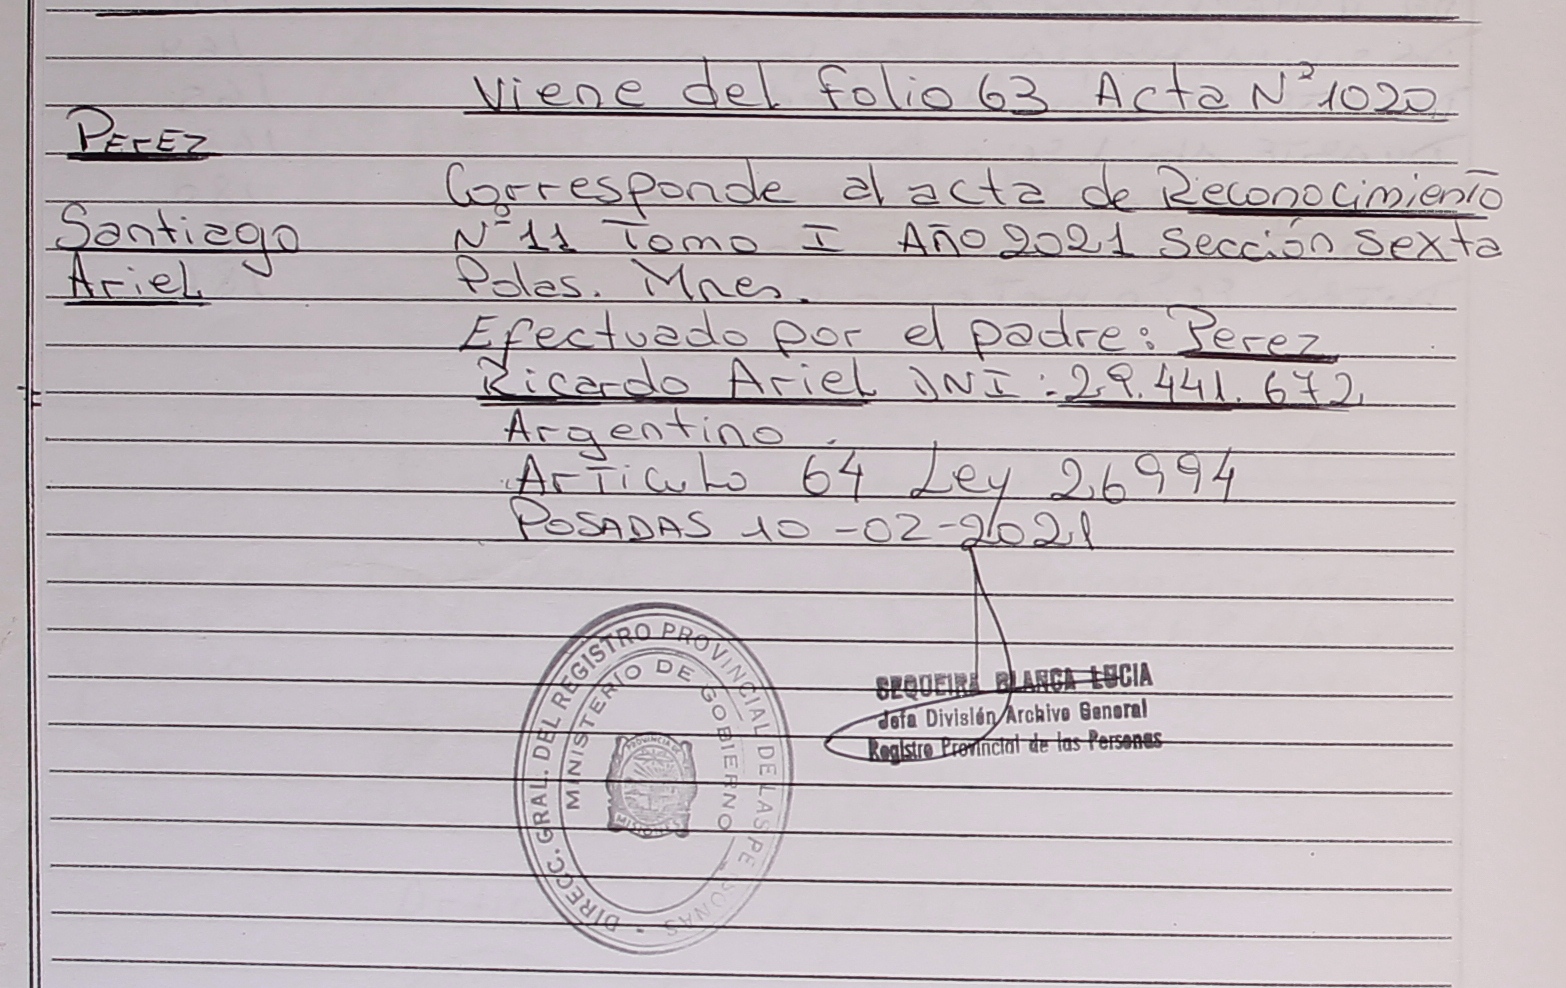 Viene del folio 63 Acta Nº 1020
PErEZ
Santiago
Ariel
Corresponde al acta de Reconocimiento
Nº 11 Tomo I Año 2021 Sección Sexta
Pdas. Mnes.
Efectuado por el padre: Perez
Ricardo Ariel DNI: 29.441.672.
Argentino.
Articulo 64 Ley 26994
POSADAS 10-02-2021
DIRECC. GRAL. DEL REGISTRO PROVINCIAL DE LAS PERSONAS
MINISTERIO DE GOBIERNO
PROVINCIA DE
MISIONES
SEQUEIRA BLANCA LUCIA
Jefa División Archivo General
Registro Provincial de las Personas